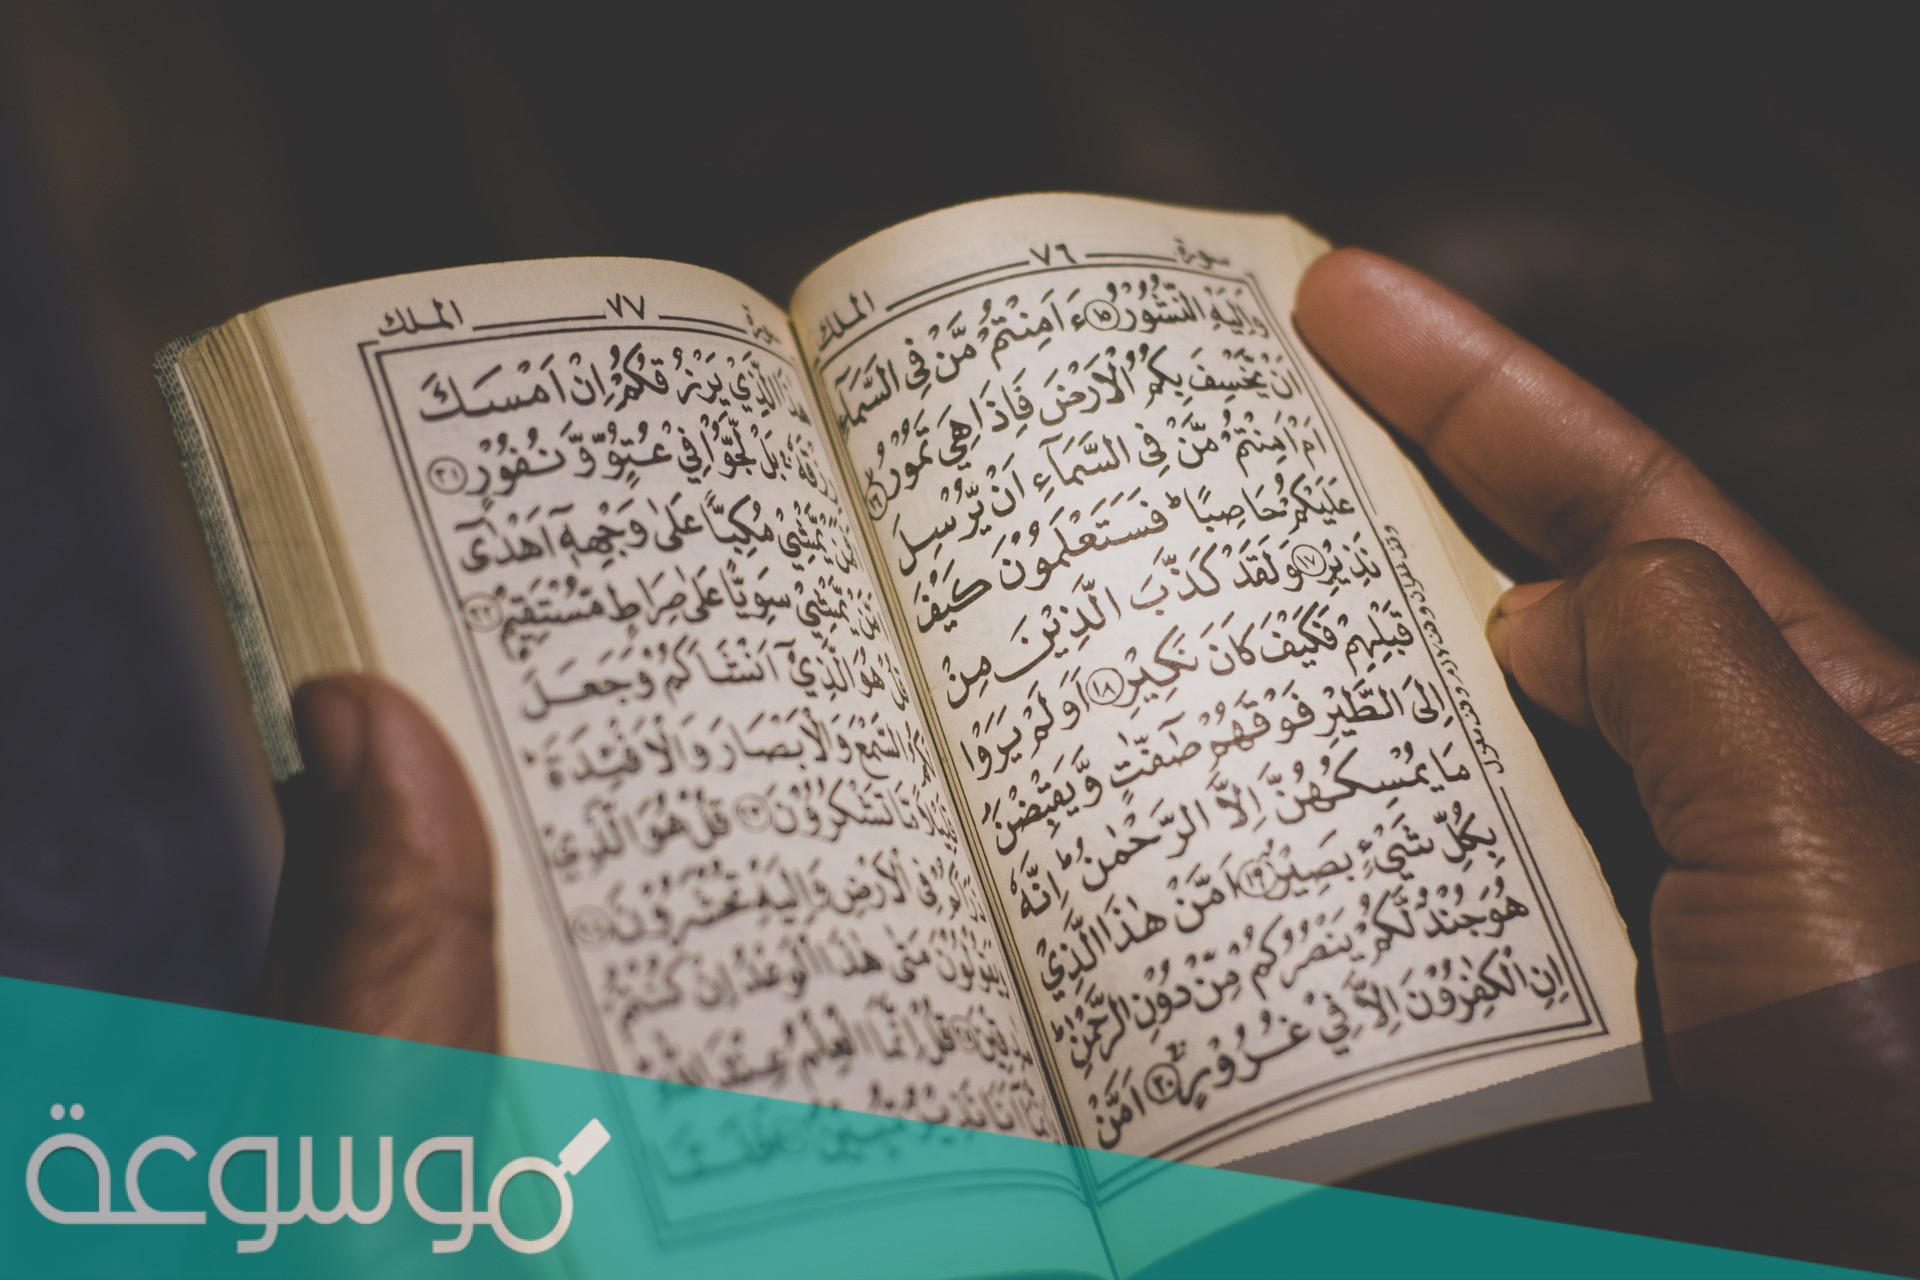 سورة ٧٦ الملك
وَاِلَيْهِ النُّشُوْرُ ۝١٥ ءَاَمِنْتُمْ مَّنْ فِى السَّمَآءِ
اَنْ يَّخْسِفَ بِكُمُ الْاَرْضَ فَاِذَا هِىَ تَمُوْرُ ۝١٦
اَمْ اَمِنْتُمْ مَّنْ فِى السَّمَآءِ اَنْ يُّرْسِلَ
عَلَيْكُمْ حَاصِبًا ؕ فَسَتَعْلَمُوْنَ كَيْفَ
نَذِيْرِ ۝١٧ وَلَقَدْ كَذَّبَ الَّذِيْنَ مِنْ
قَبْلِهِمْ فَكَيْفَ كَانَ نَكِيْرِ ۝١٨ اَوَلَمْ يَرَوْا
اِلَى الطَّيْرِ فَوْقَهُمْ صٰٓفّٰتٍ وَّيَقْبِضْنَ ؔ
مَا يُمْسِكُهُنَّ اِلَّا الرَّحْمٰنُ ؕ اِنَّهٗ
بِكُلِّ شَىْءٍ بَصِيْرٌ ۝١٩ اَمَّنْ هٰذَا الَّذِىْ
هُوَ جُنْدٌ لَّكُمْ يَنْصُرُكُمْ مِّنْ دُوْنِ الرَّحْمٰنِ ؕ
اِنِ الْكٰفِرُوْنَ اِلَّا فِىْ غُرُوْرٍ ۝٢٠ اَمَّنْ
سورة ٧٧ الملك
هٰذَا الَّذِىْ يَرْزُقُكُمْ اِنْ اَمْسَكَ
رِزْقَهٗ ۚ بَلْ لَّجُّوْا فِىْ عُتُوٍّ وَّنُفُوْرٍ ۝٢١
يَّمْشِىْ مُكِبًّا عَلٰى وَجْهِهٖٓ اَهْدٰٓى
يَّمْشِىْ سَوِيًّا عَلٰى صِرَاطٍ مُّسْتَقِيْمٍ ۝٢٢
قُلْ هُوَ الَّذِىْٓ اَنْشَاَكُمْ وَجَعَلَ
لَكُمُ السَّمْعَ وَالْاَبْصَارَ وَالْاَفْئِدَةَ ؕ
قَلِيْلًا مَّا تَشْكُرُوْنَ ۝٢٣ قُلْ هُوَ الَّذِىْ
ذَرَاَكُمْ فِى الْاَرْضِ وَاِلَيْهِ تُحْشَرُوْنَ ۝٢٤
وَيَقُوْلُوْنَ مَتٰى هٰذَا الْوَعْدُ اِنْ كُنْتُمْ
صٰدِقِيْنَ ۝٢٥ قُلْ اِنَّمَا الْعِلْمُ عِنْدَ اللّٰهِ
موسوعة